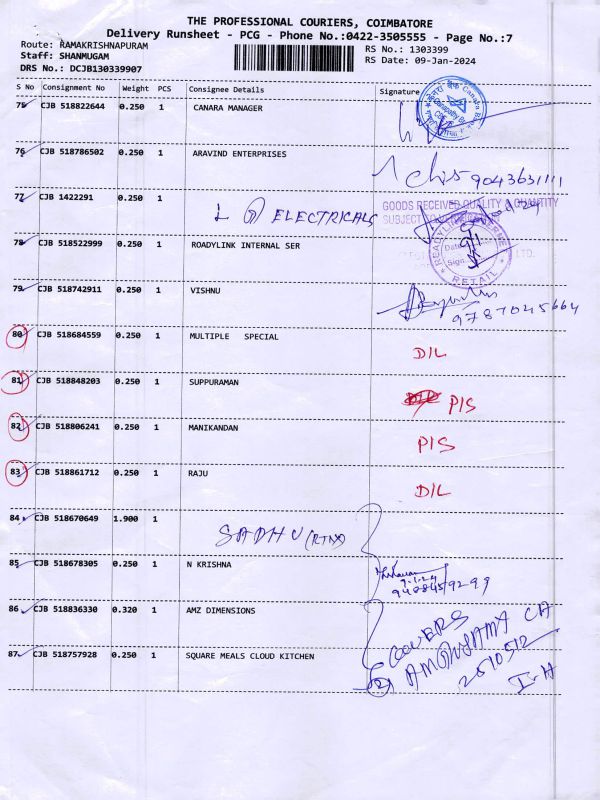 THE PROFESSIONAL COURIERS, COIMBATORE
Delivery Runsheet - PCG - Phone No.:0422-3505555 - Page No.:7
Route: RAMAKRISHNAPURAM
Staff: SHANMUGAM
DRS No.: DCJB130339907
RS No.: 1303399
RS Date: 09-Jan-2024
S No Consignment No Weight PCS Consignee Details Signature
75 CJB 518822644 0.250 1 CANARA MANAGER
76 CJB 518786502 0.250 1 ARAVIND ENTERPRISES
9043631111
77 CJB 1422291 0.250 1 ELECTRICALS
GOODS RECEIVED QUALITY & QUANTITY
SUBJECT TO
78 CJB 518522999 0.250 1 ROADYLINK INTERNAL SER
RETAIL
79 CJB 518742911 0.250 1 VISHNU
9787045664
80 CJB 518684559 0.250 1 MULTIPLE SPECIAL D/L
81 CJB 518848203 0.250 1 SUPPURAMAN P/S
82 CJB 518806241 0.250 1 MANIKANDAN P/S
83 CJB 518861712 0.250 1 RAJU D/L
84 CJB 518670649 1.900 1 SADHU
85 CJB 518678305 0.250 1 N KRISHNA
9.1.24
86 CJB 518836330 0.320 1 AMZ DIMENSIONS
COVERS
87 CJB 518757928 0.250 1 SQUARE MEALS CLOUD KITCHEN
2510512